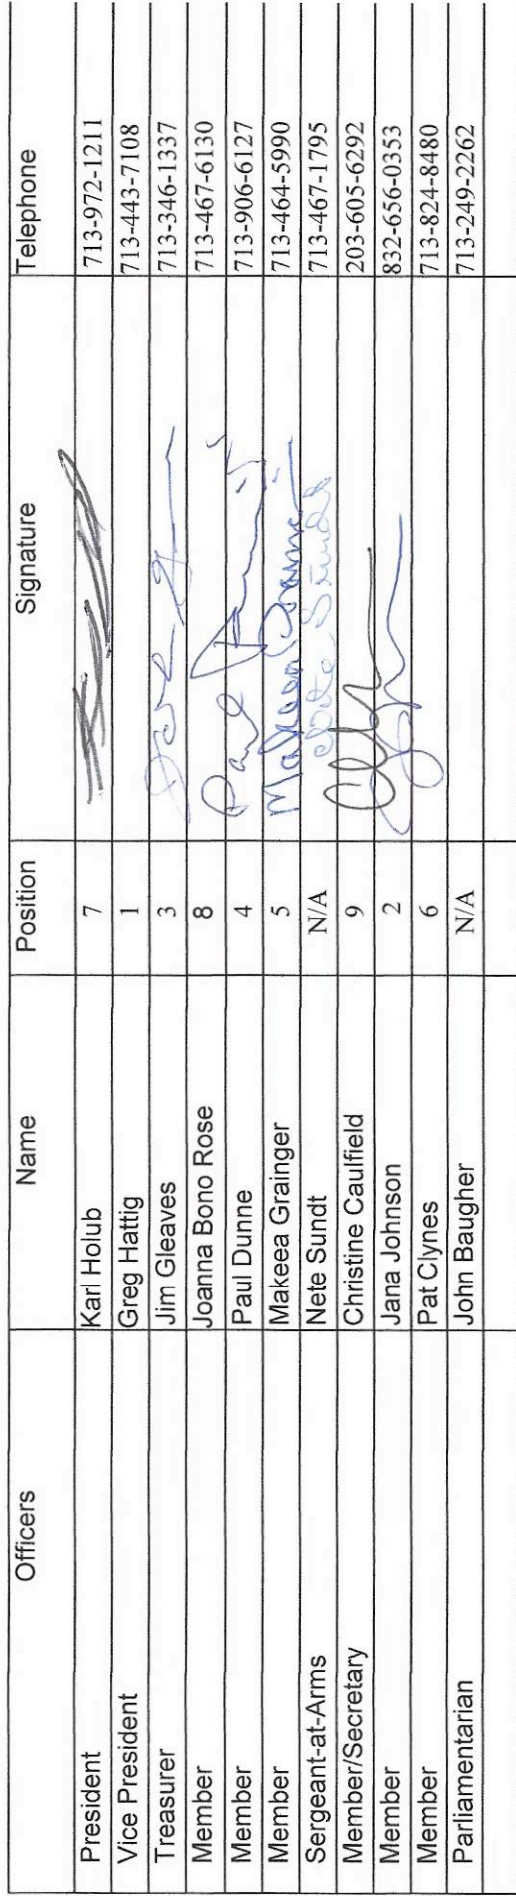 Officers Name Position Signature Telephone
President Karl Holub 7 713-972-1211
Vice President Greg Hattig 1 713-443-7108
Treasurer Jim Gleaves 3 713-346-1337
Member Joanna Bono Rose 8 713-467-6130
Member Paul Dunne 4 Paul 713-906-6127
Member Makeea Grainger 5 Makeea 713-464-5990
Sergeant-at-Arms Nete Sundt N/A Nete Sundt 713-467-1795
Member/Secretary Christine Caulfield 9 203-605-6292
Member Jana Johnson 2 832-656-0353
Member Pat Clynes 6 713-824-8480
Parliamentarian John Baugher N/A 713-249-2262